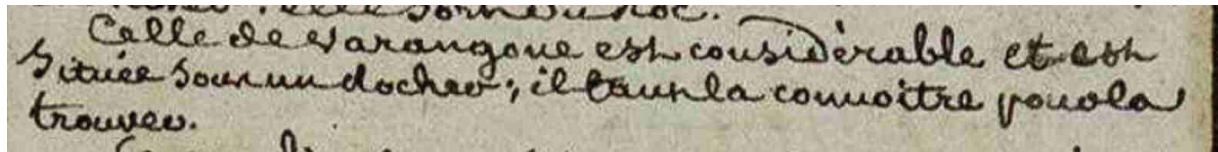 elle sort du roc.
Celle de Varangoue est considérable et est
Située sous un rocher; il faut la connoitre pour la
trouver.